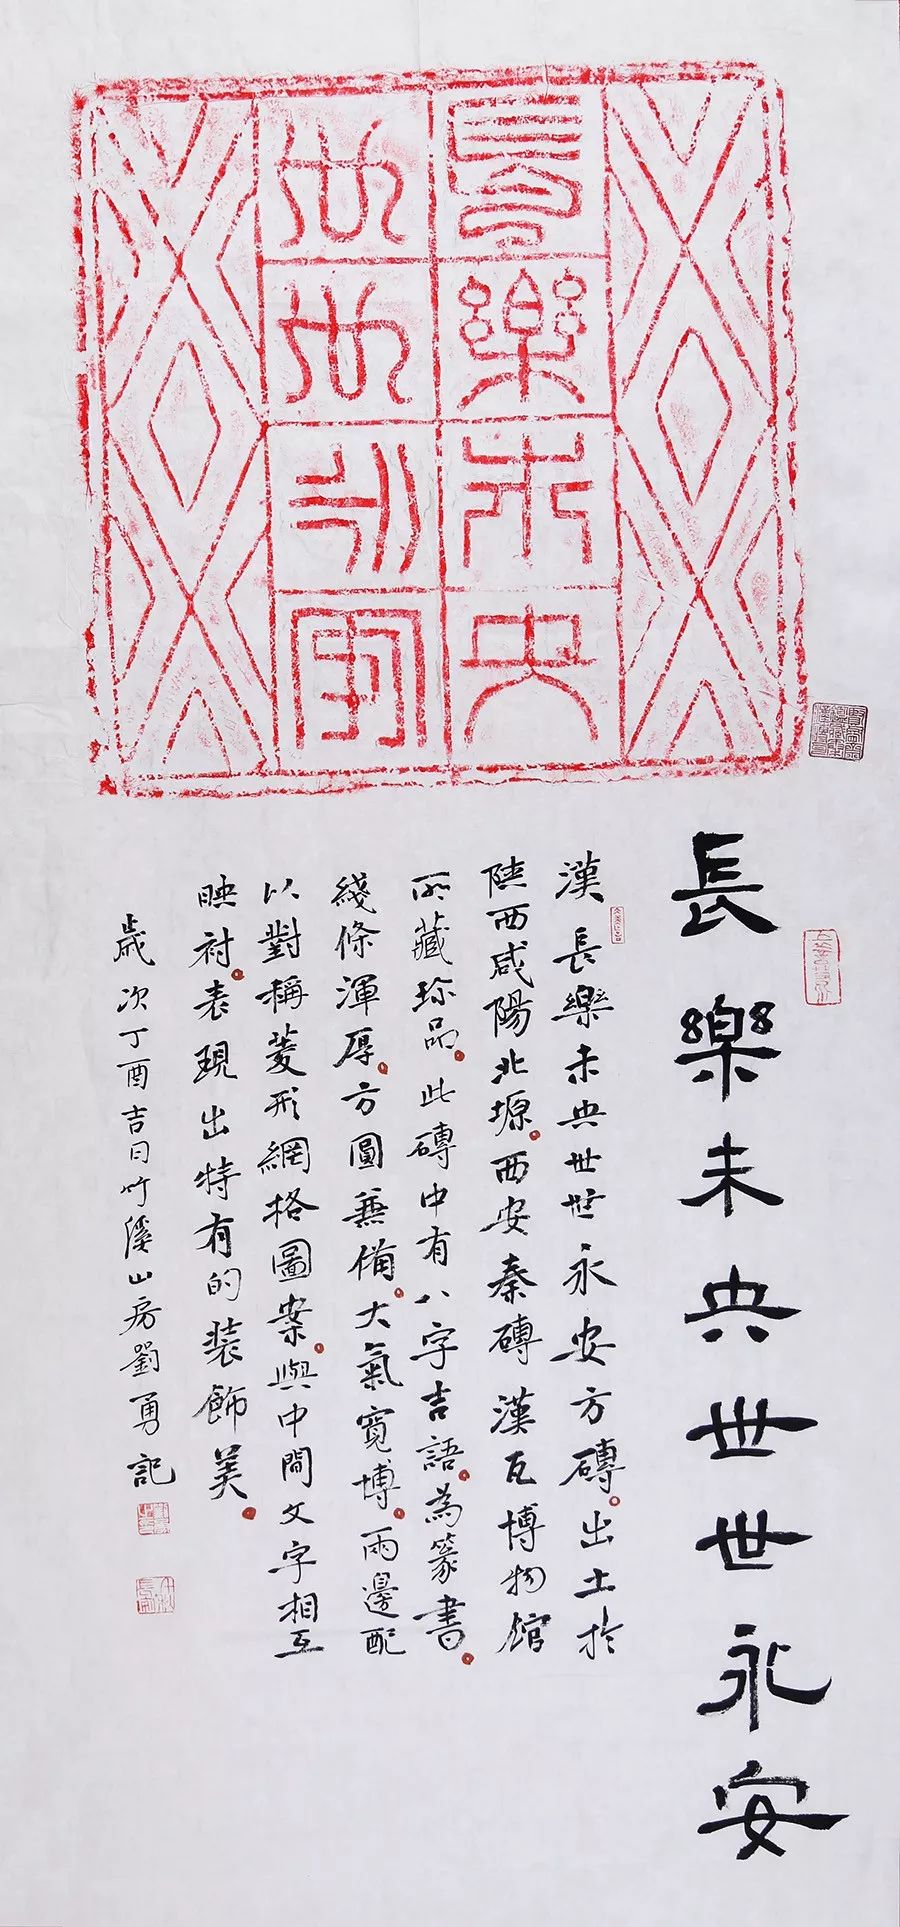 長樂未央
世世永安
長樂未央世世永安
漢長樂未央世世永安方磚。出土於
陝西咸陽北塬。西安秦磚漢瓦博物館
所藏珍品。此磚中有八字吉語。為篆書。
綫條渾厚。方圓兼備。大氣寬博。兩邊配
以對稱菱形網格圖案。與中間文字相互
映衬。表現出特有的裝飾美。
歲次丁酉吉日竹溪山房劉勇記